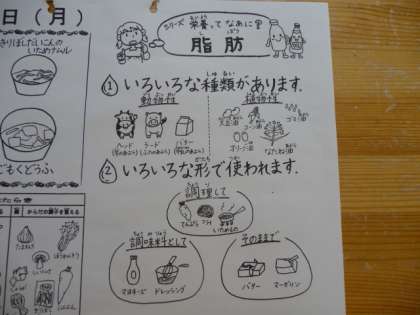 日(月)
シリーズ 栄養ってなあに?
脂肪
①いろいろな種類があります。
動物性
植物性
ヘッド
ラード
バター
大豆油
コーン油
ゴマ油
オリーブ油
なたね油
②いろいろな形で使われます。
調理して
てんぷら
いためもの
調味料として
マヨネーズ
ドレッシング
そのままで
バター
マーガリン
いためナムル
もくどうふ
からだの調子を整える
たまねぎ
ほうれんそう
にんじん